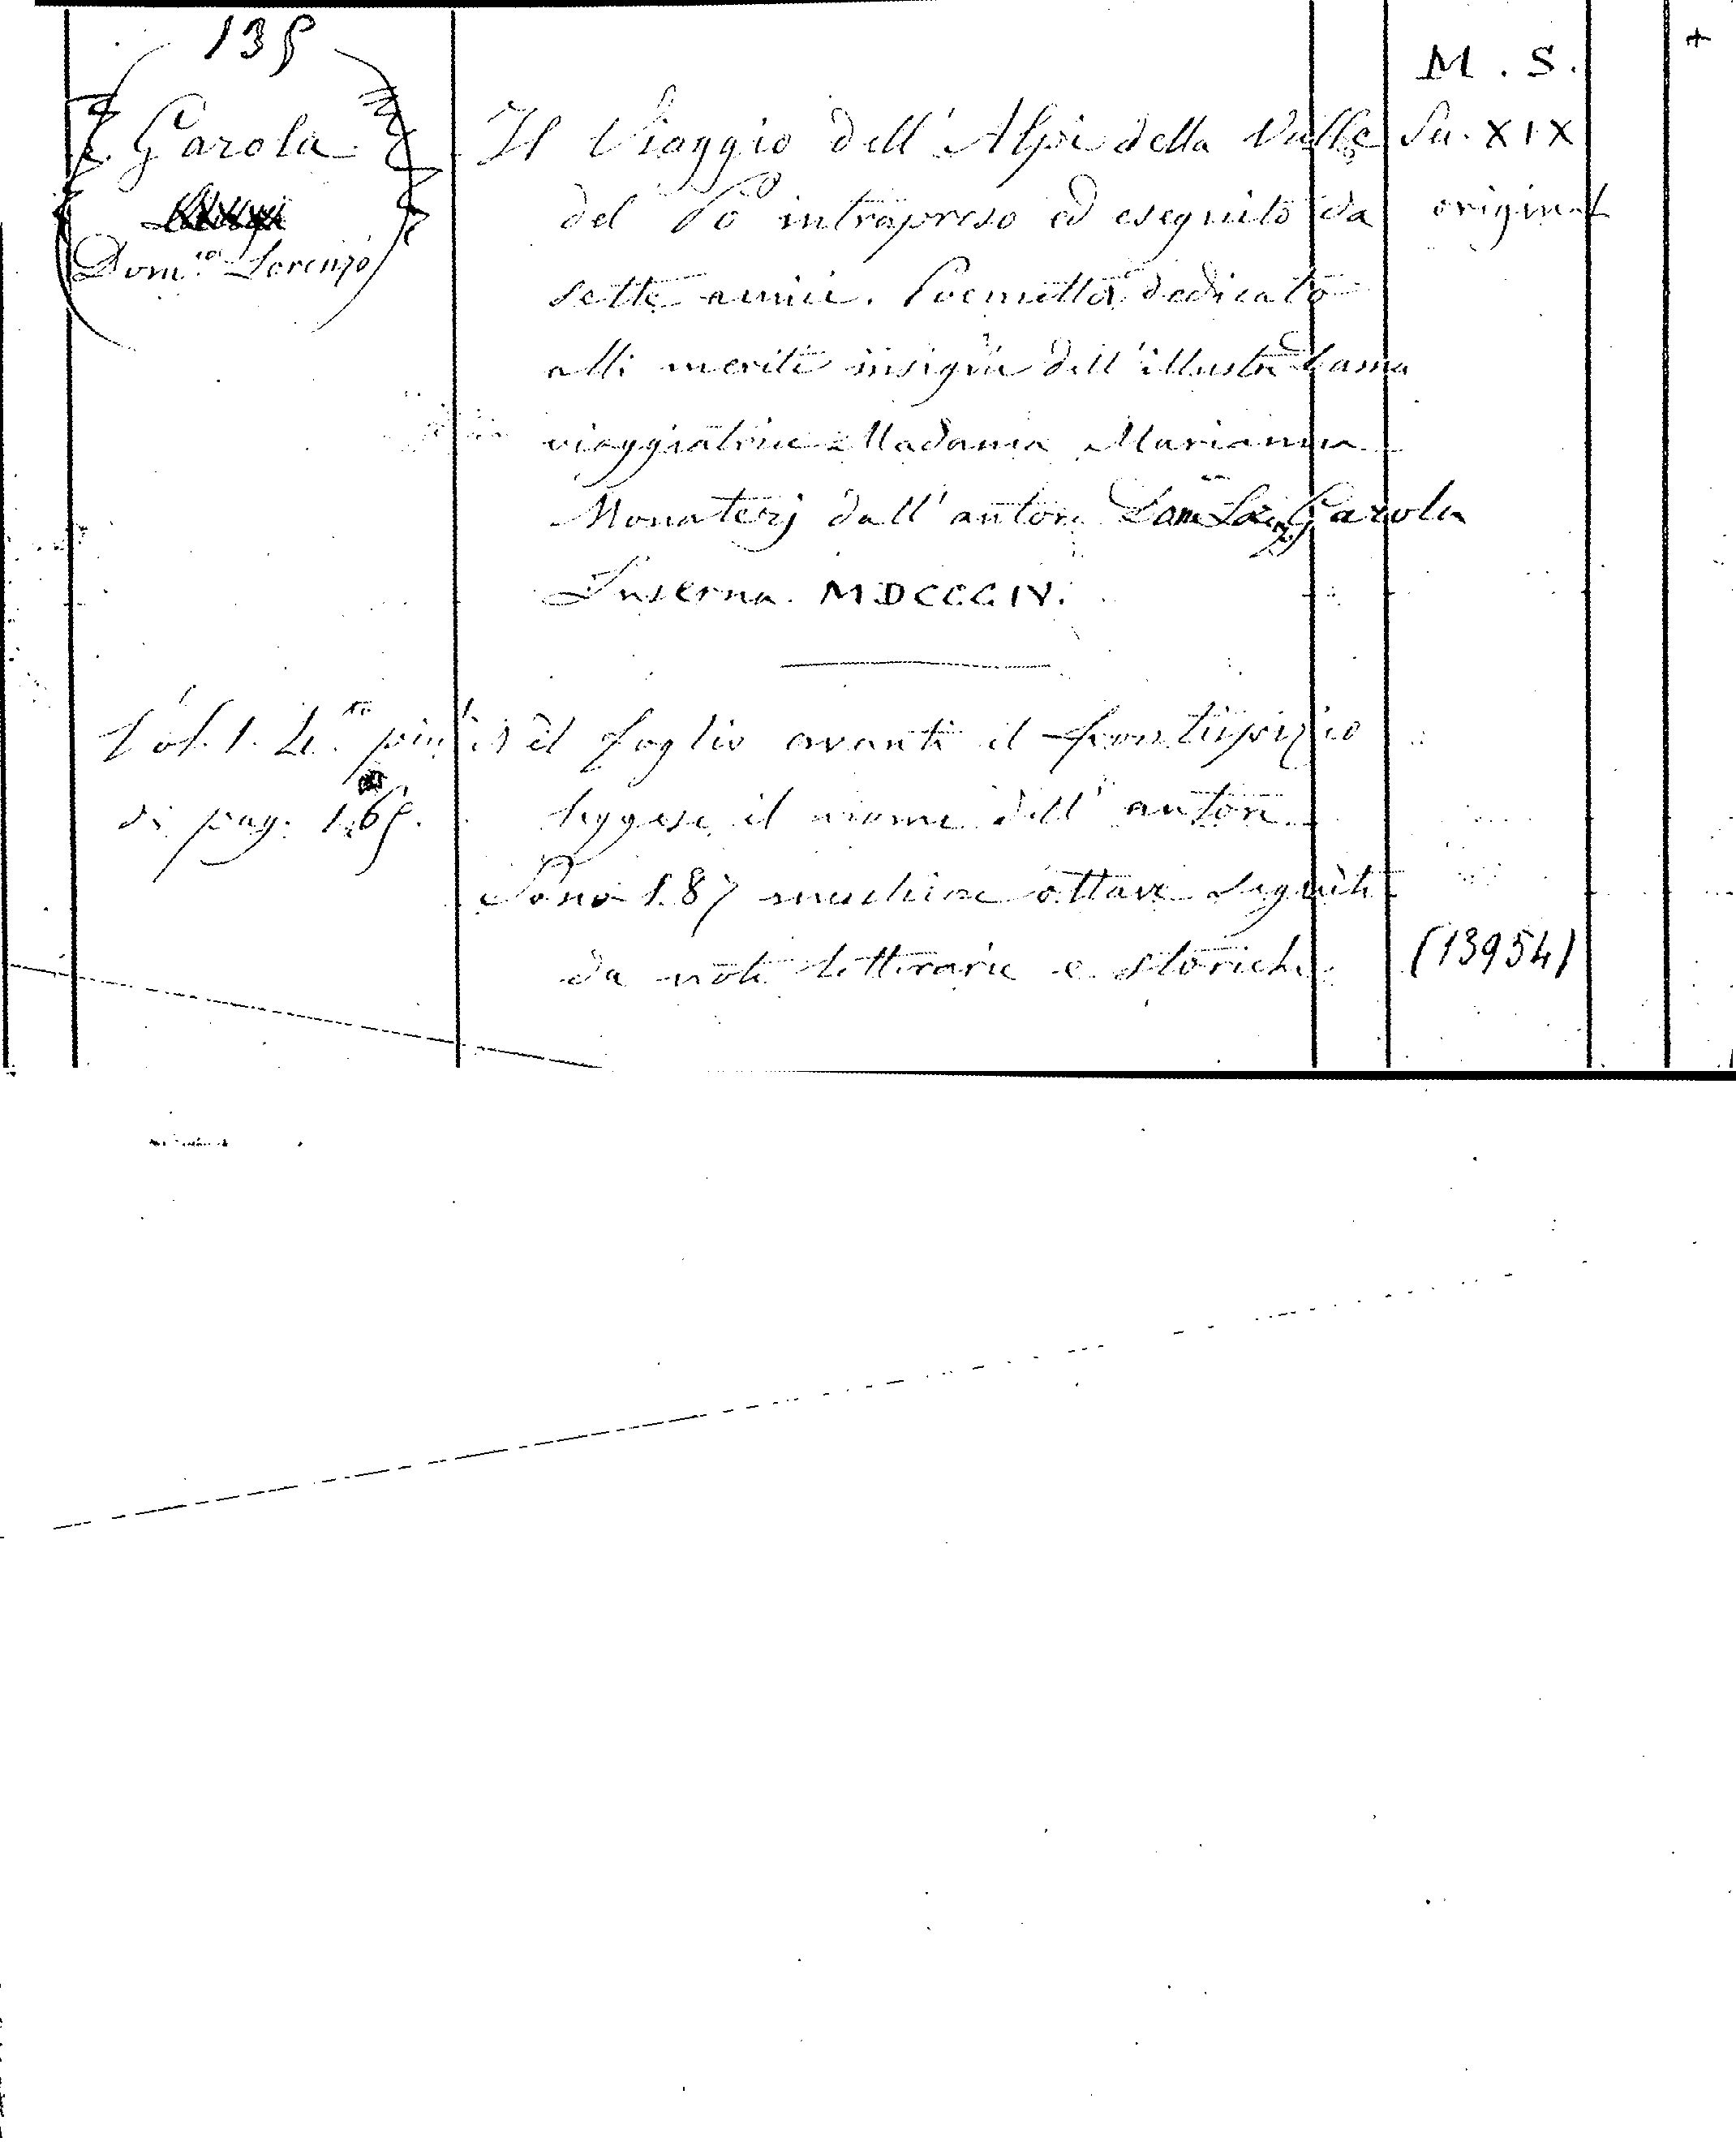 135
M. S.
+
Garola
Dom.co Lorenzo
Il Viaggio dell'Alpi della Valle
Sec. XIX
del Po intrapreso ed eseguito da
original
sette amici. Poemetto dedicato
alli meriti insigni dell'illustre Dama
viaggiatrice Madama Marianna
Monaterj dall'autore Dom Garola
Luserna. MDCCCIV.
Vol. 1. 4.to più il foglio avanti il frontispizio
di pag. 165.
leggesi il nome dell'autore.
Sono 187 meschine ottave seguite
da note letterarie e storiche.
(13954)